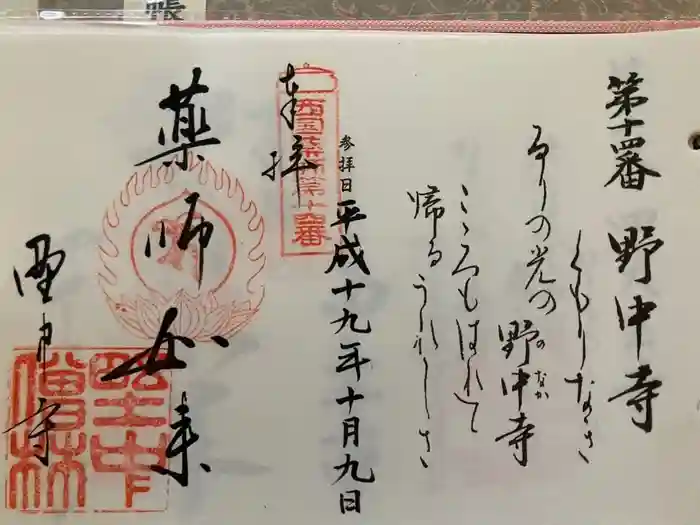 帳
第十四番 野中寺
くもりなき
るりの光の
野中寺
のなか
こゝろもはれて
帰るうれしさ
参拝日
平成十九年十月九日
奉拝
西国薬師第十四番
薬師如来
野中寺
野中
僧林